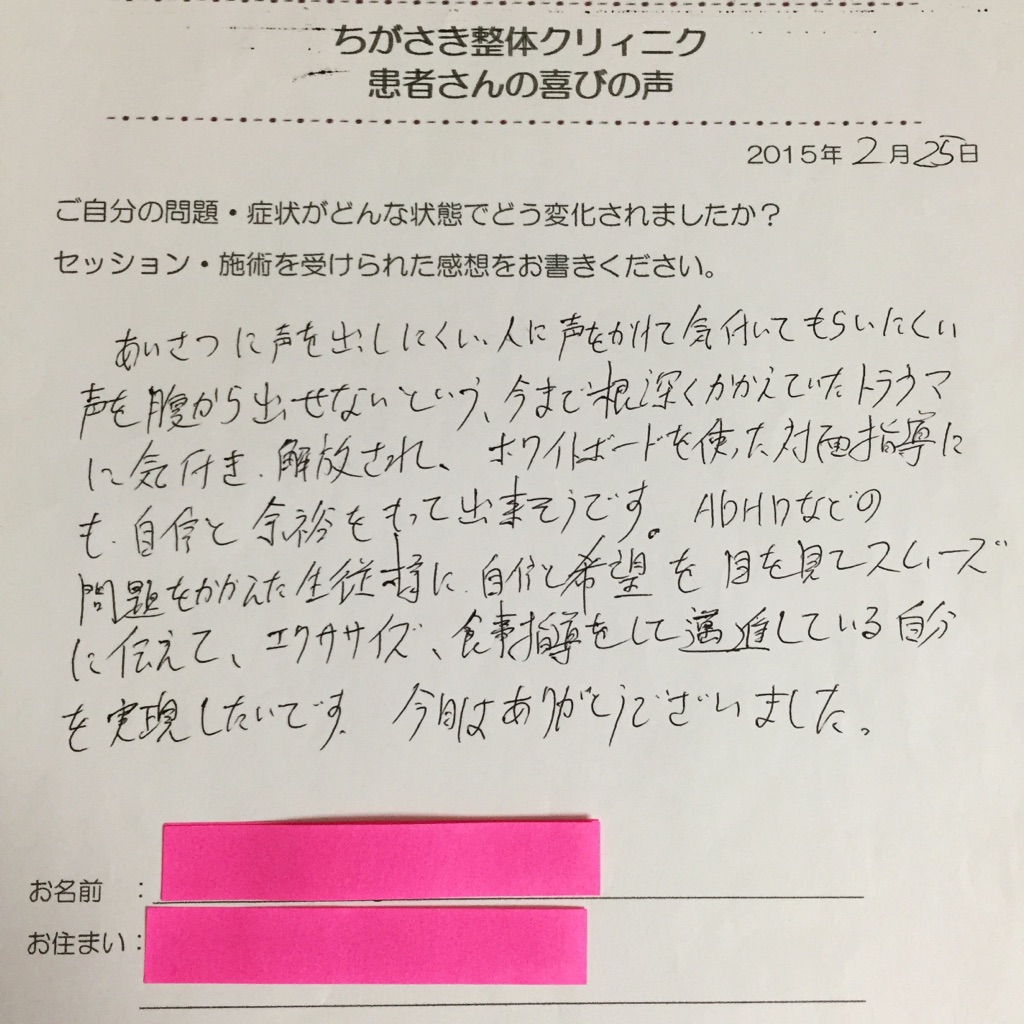 ちがさき整体クリィニク
患者さんの喜びの声
2015年 2月25日
ご自分の問題・症状がどんな状態でどう変化されましたか？
セッション・施術を受けられた感想をお書きください。
あいさつに声を出しにくい、人に声をかけて気付いてもらいにくい
声を腹から出せないという、今まで根深くかかえていたトラウマ
に気付き、解放され、ホワイトボードを使った対面指導に
も、自信と余裕をもって出来そうです。ADHDなどの
問題をかかえた生徒様に、自信と希望を目を見てスムーズ
に伝えて、エクササイズ、食事指導をして邁進している自分
を実現したいです。今日はありがとうございました。
お名前 ：
お住まい：